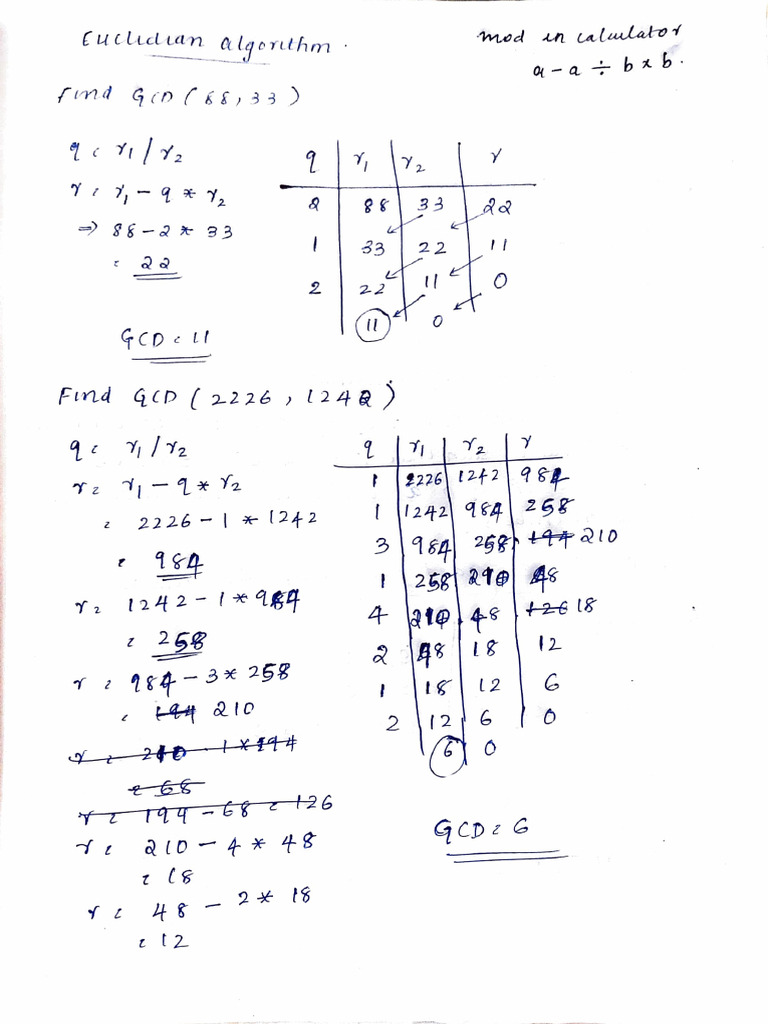 Euclidian algorithm.
mod in calculator
a - a ÷ b × b.
Find GCD ( 88 , 33 )
q = r1 / r2
r = r1 - q * r2
⇒ 88 - 2 * 33
= 22
GCD = 11
q r1 r2 r
2 88 33 22
1 33 22 11
2 22 11 0
11 0
Find GCD ( 2226 , 1242 )
q = r1 / r2
r = r1 - q * r2
= 2226 - 1 * 1242
= 984
r = 1242 - 1 * 984
= 258
r = 984 - 3 * 258
= 194 210
r = 210 - 1 * 194
= 68
r = 194 - 68 = 126
r = 210 - 4 * 48
= 18
r = 48 - 2 * 18
= 12
q r1 r2 r
1 2226 1242 984
1 1242 984 258
3 984 258 194 210
1 258 210 48
4 210 48 126 18
2 48 18 12
1 18 12 6
2 12 6 0
6 0
GCD = 6